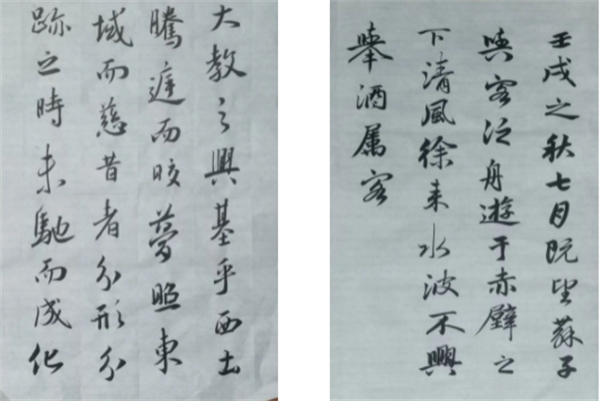 大教之興基乎西土
騰庭而晈夢照東
域而慈昔者分形分
跡之時未馳而成化
壬戌之秋七月既望蘇子
與客泛舟遊于赤壁之
下清風徐来水波不興
舉酒属客